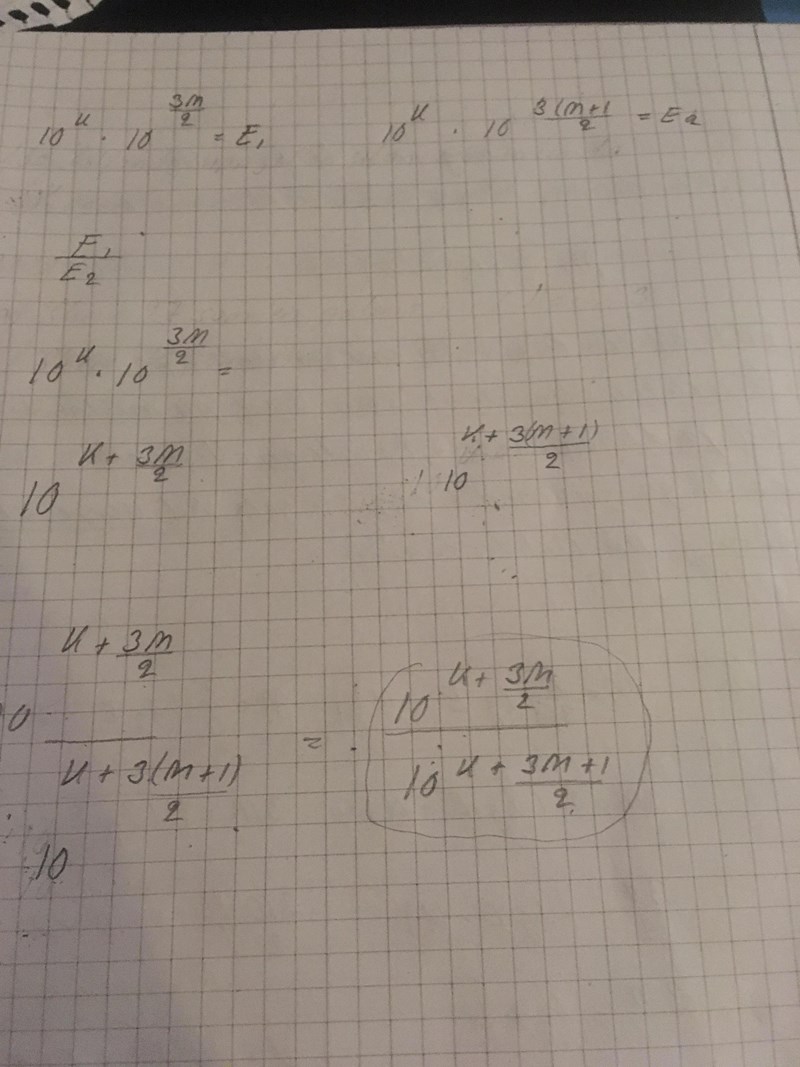 10^K · 10^(3M/2) = E₁
10^K · 10^(3(M+1/2) = E₂
E₁/E₂
10^K · 10^(3M/2) =
10^(K + 3M/2)
10^(K + 3(M+1)/2)
10^(K + 3M/2) / 10^(K + 3(M+1)/2) = 10^(K + 3M/2) / 10^(K + 3M+1/2)